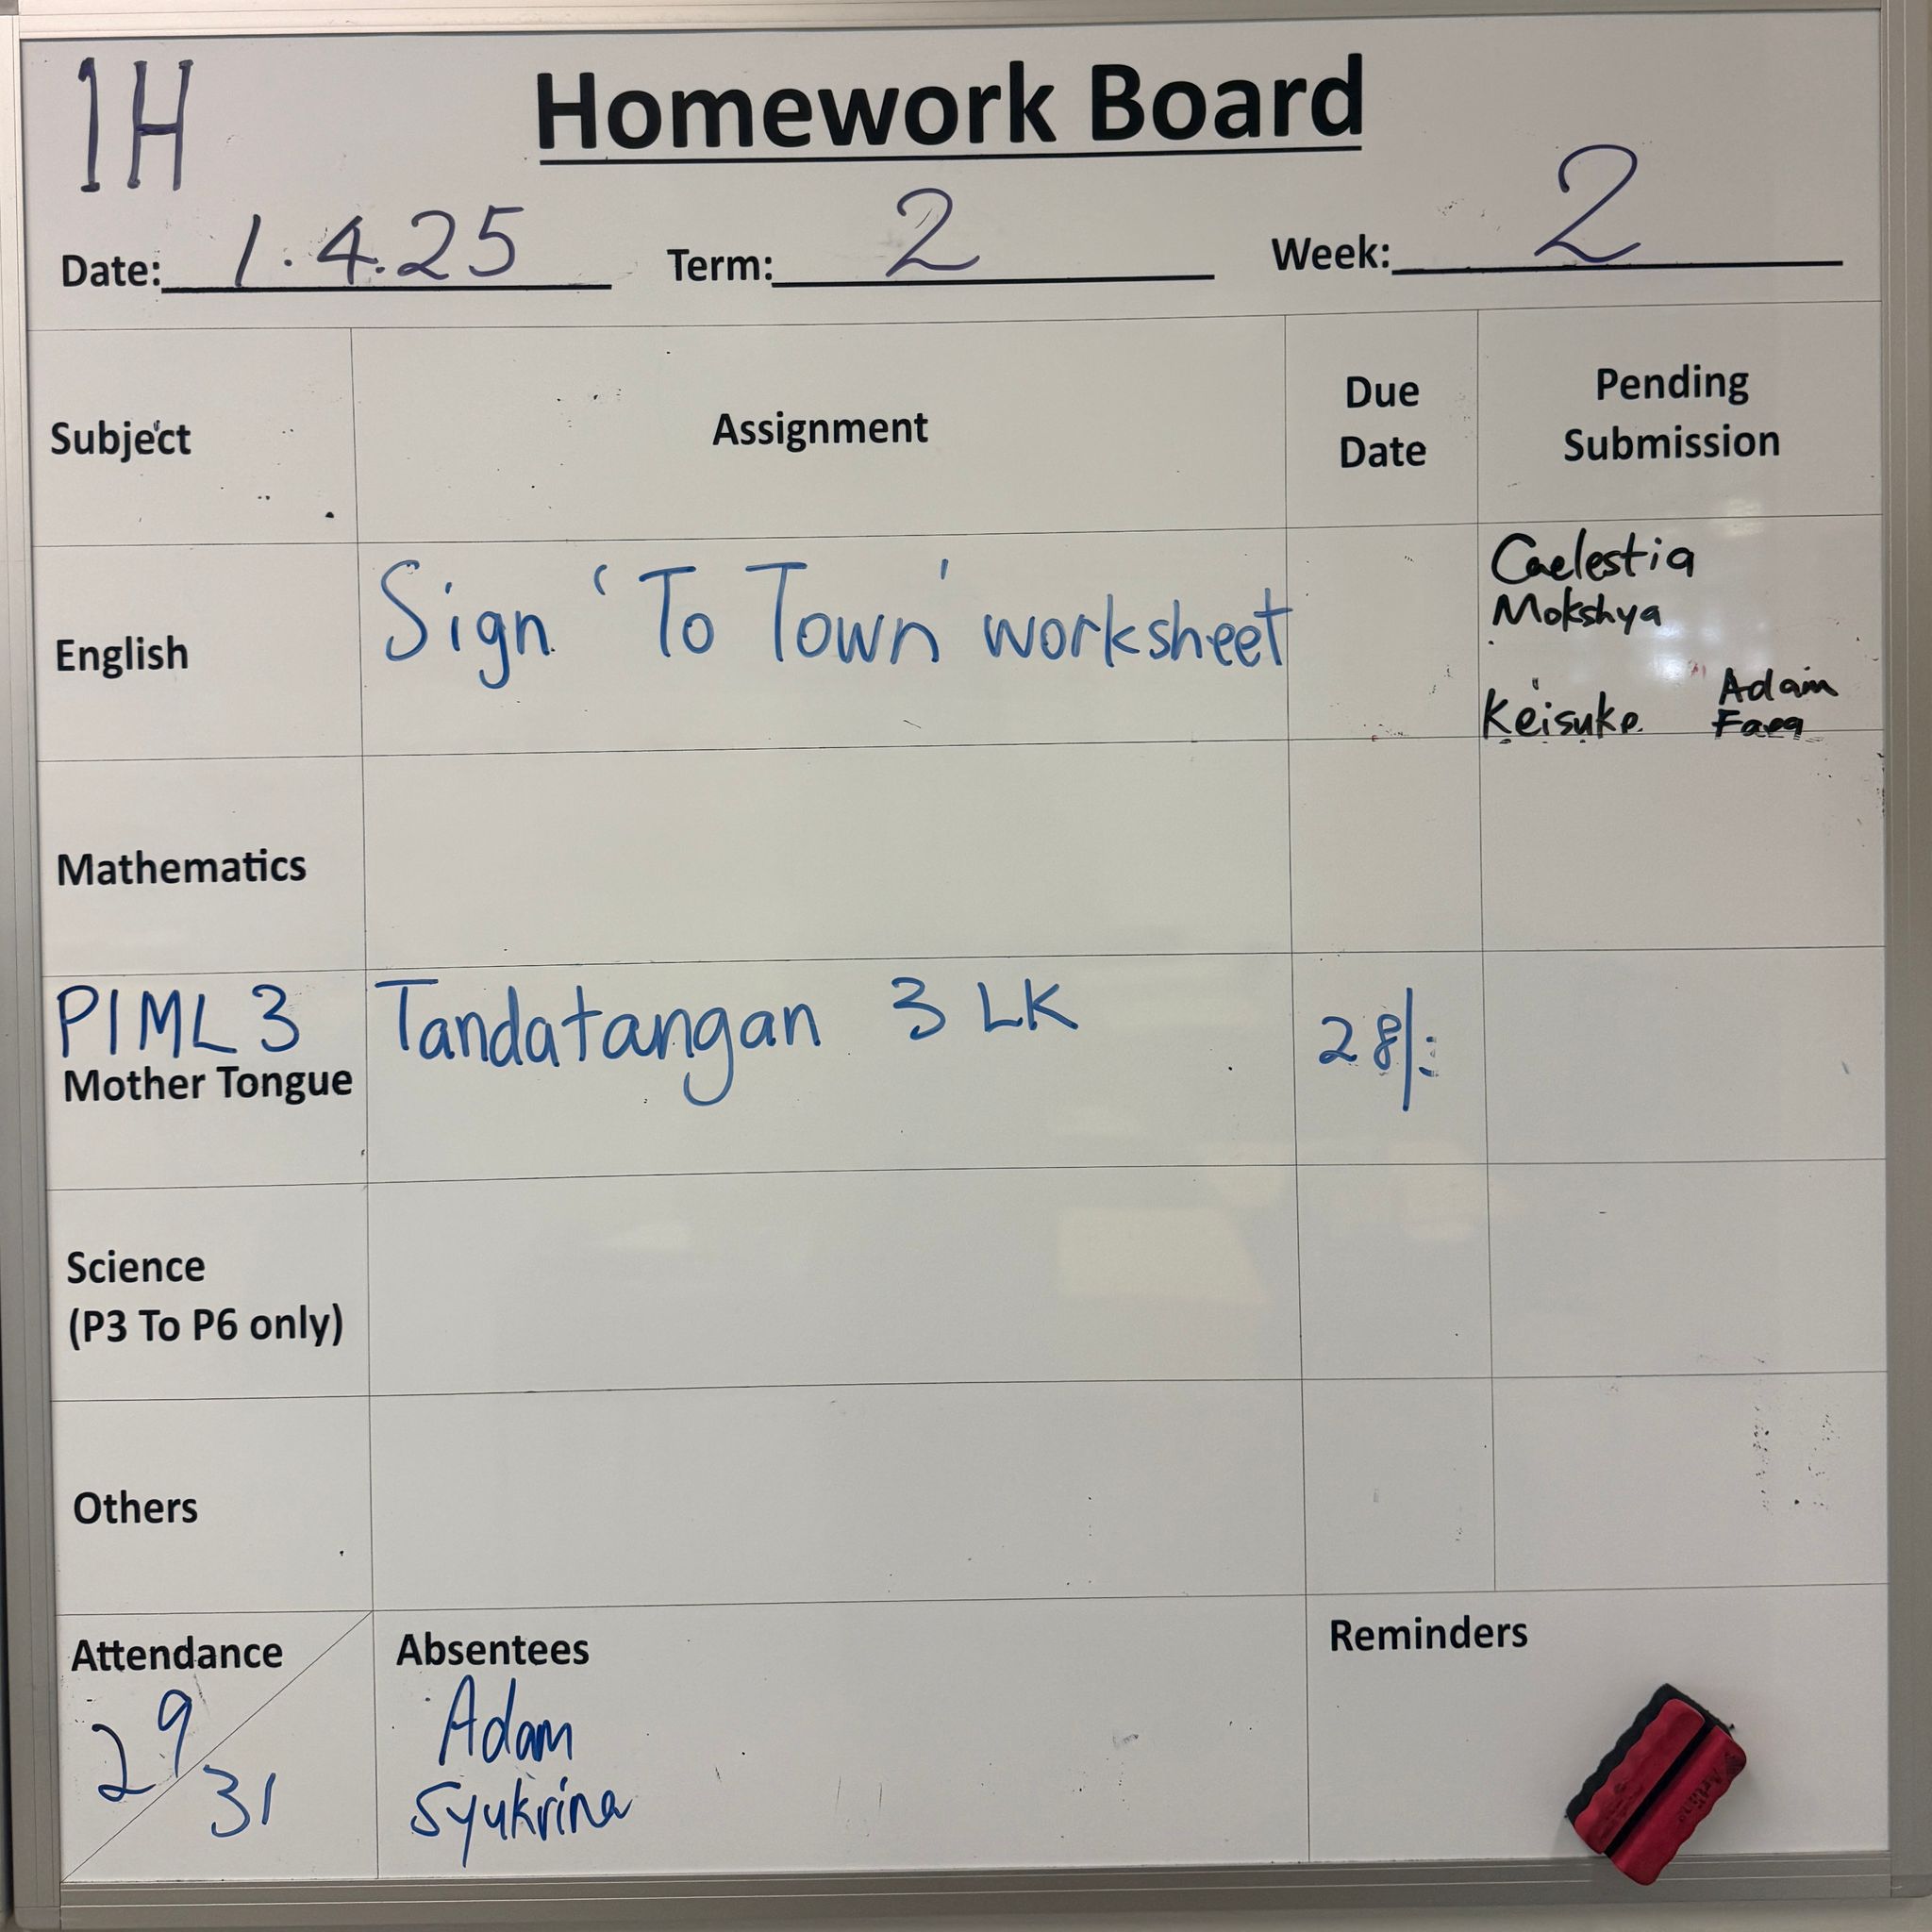 1H
Homework Board
Date: 1.4.25 Term: 2 Week: 2
Subject Assignment Due Date Pending Submission
English Sign 'To Town' worksheet
Caelestia
Mokshya
Keisuke Adam
Mathematics
P1ML3 Tandatangan 3 LK 28/
Mother Tongue
Science
(P3 To P6 only)
Others
Attendance Absentees Reminders
29/31
Adam
Syukrina